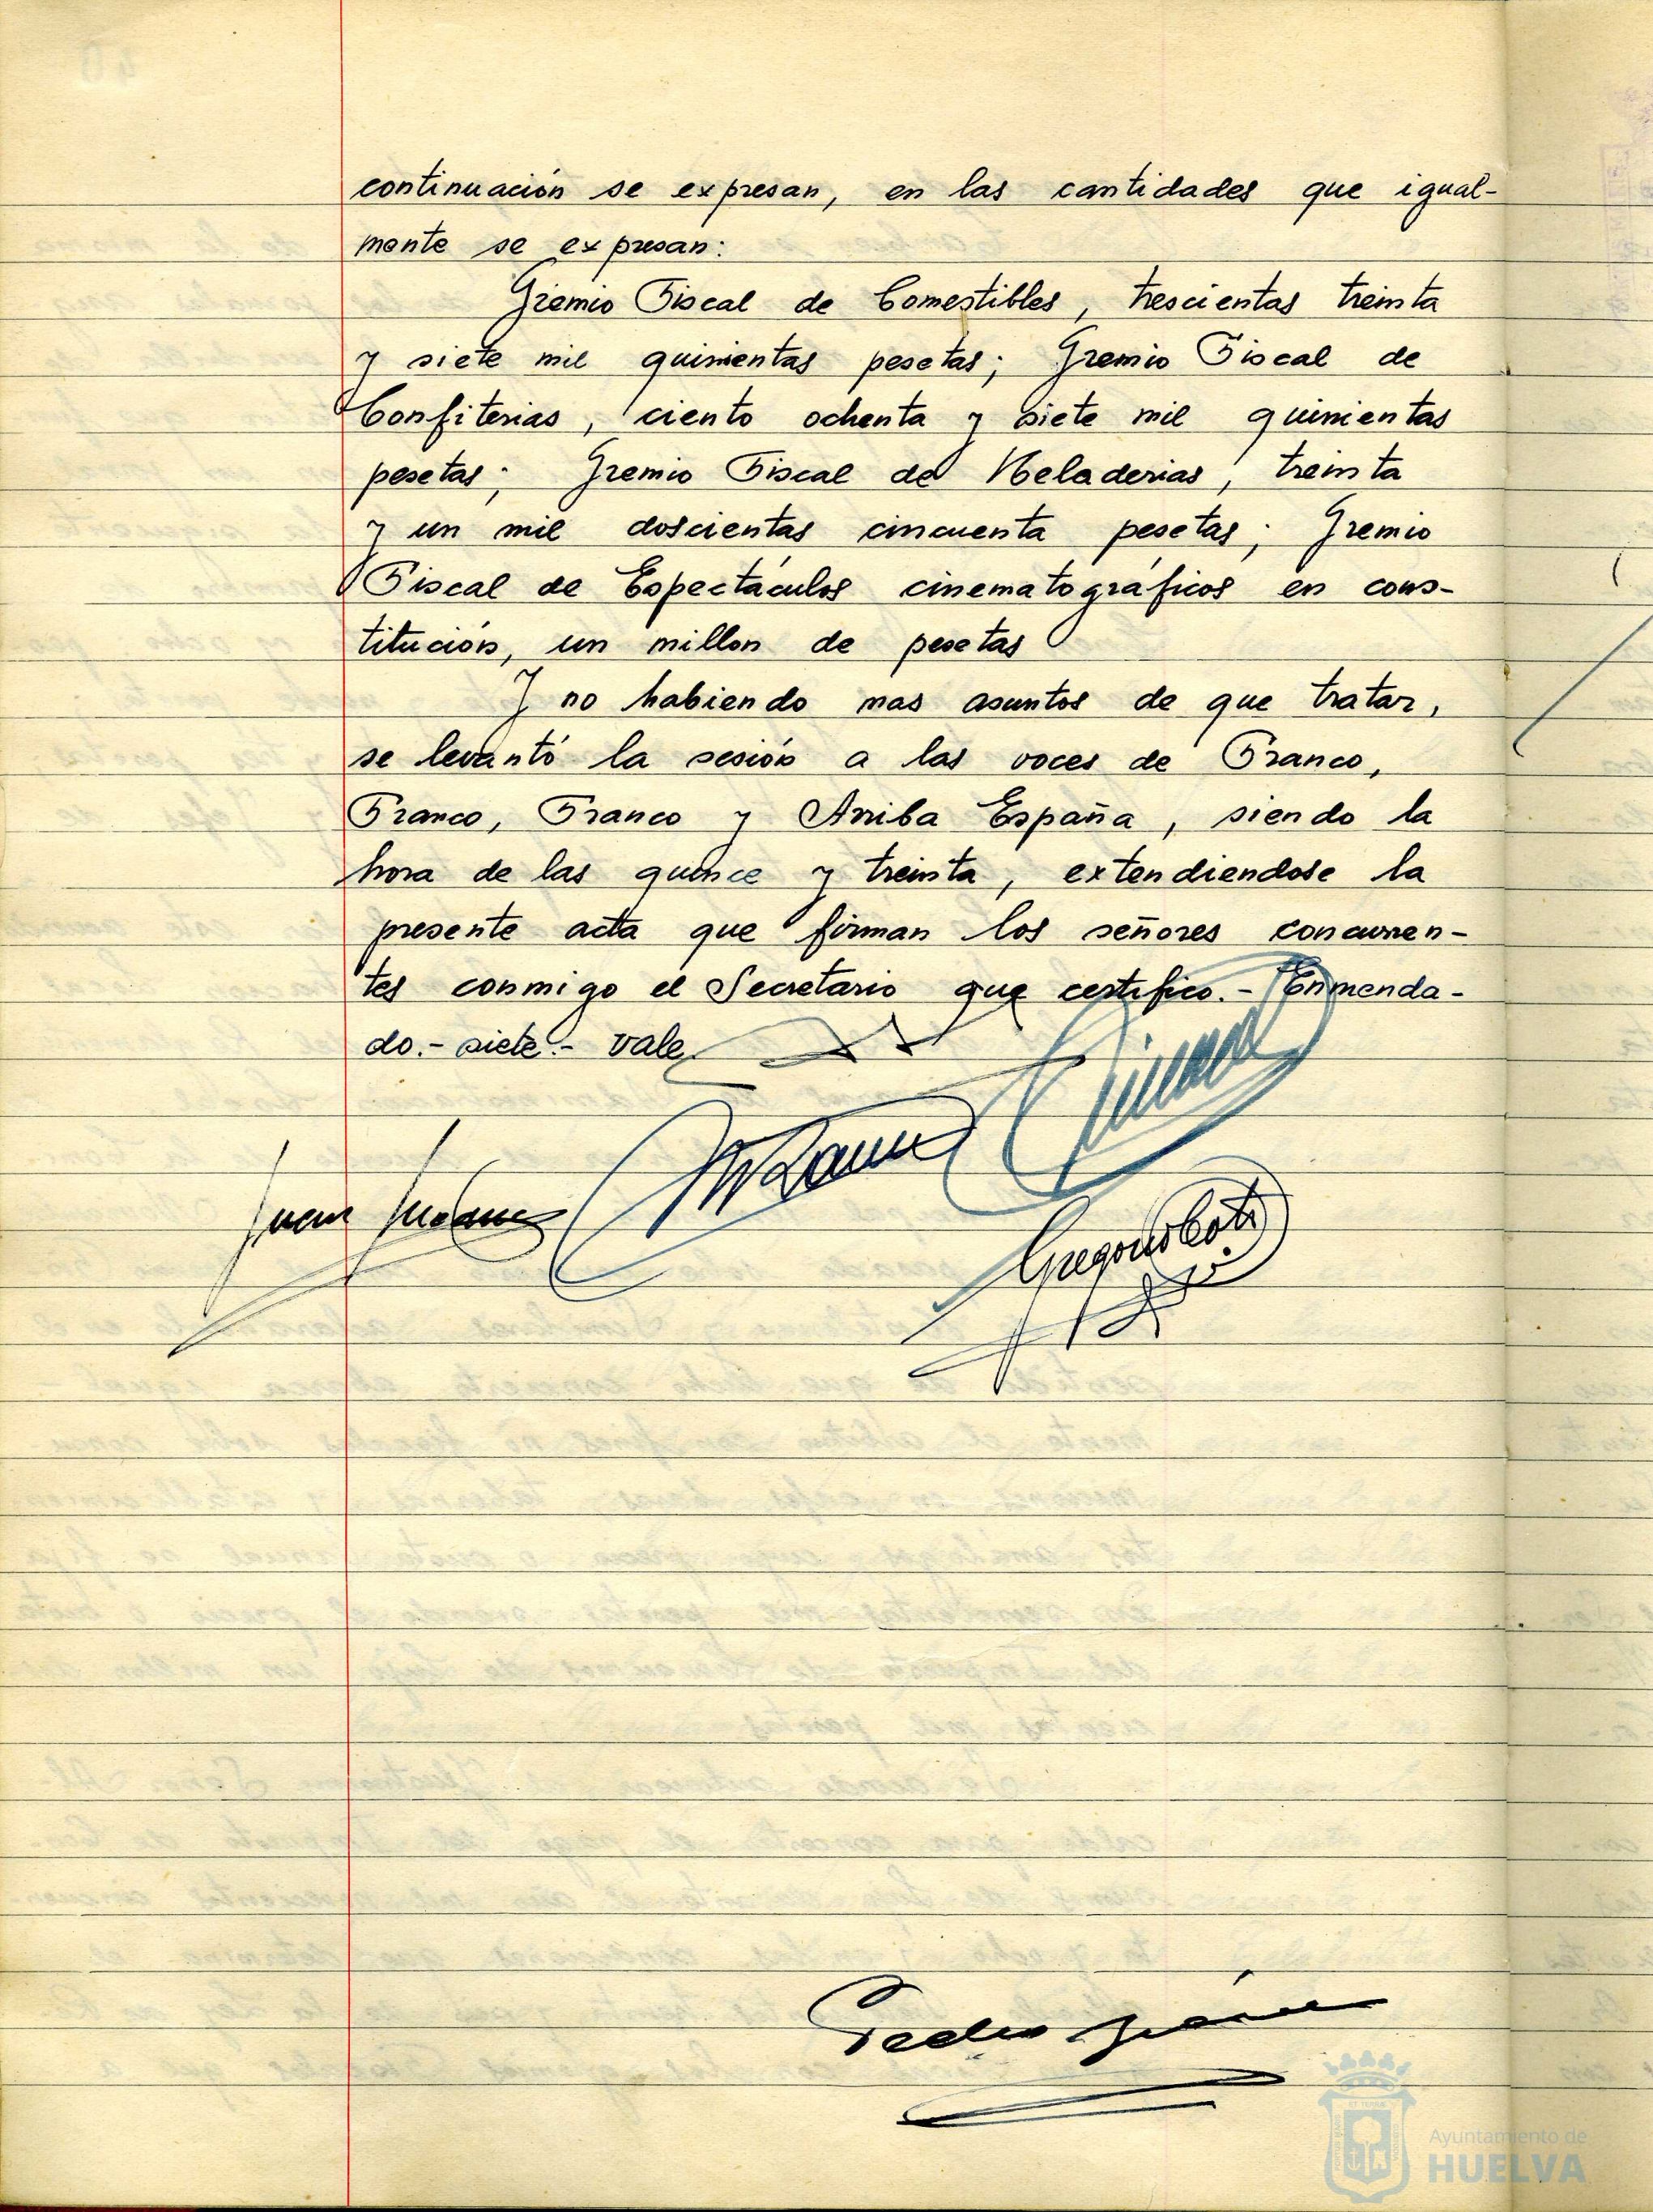 continuación se expresan, en las cantidades que igual-
mente se expresan:
Gremio Fiscal de Comestibles, trescientas treinta
y siete mil quinientas pesetas; Gremio Fiscal de
Confiterias, ciento ochenta y siete mil quinientas
pesetas; Gremio Fiscal de Heladerias, treinta
y un mil doscientas cincuenta pesetas; Gremio
Fiscal de Espectáculos cinematográficos en cons-
titución, un millon de pesetas
Y no habiendo mas asuntos de que tratar,
se levantó la sesión a las voces de Franco,
Franco, Franco y Arriba España, siendo la
hora de las quince y treinta, extendiendose la
presente acta que firman los señores concurren-
tes conmigo el Secretario que certifico.- Enmenda-
do.- siete.- vale.
Juan
Gregorio
Pedro
Ayuntamiento de
HUELVA